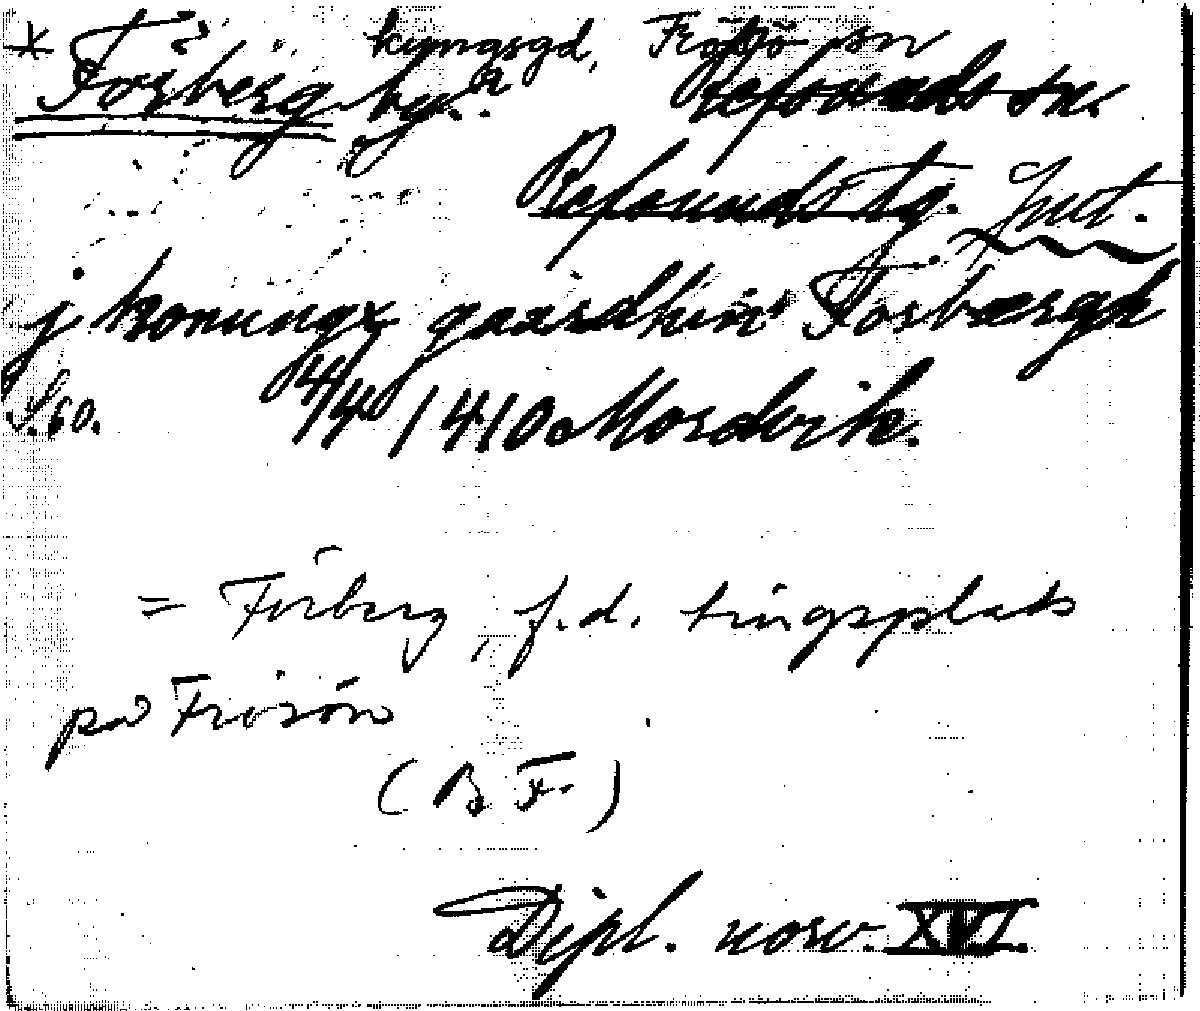 * kungsgd, Frösö sn
Torberg by. Refsunds sn.
Refsunds tg. Jmt.
j konungx gaardhin Torbærgh
S. 60. 4/4 1410 Mordvik.
= Torberg, f.d. tingsplats
på Frösön
(B F.)
Dipl. norv. XVI.